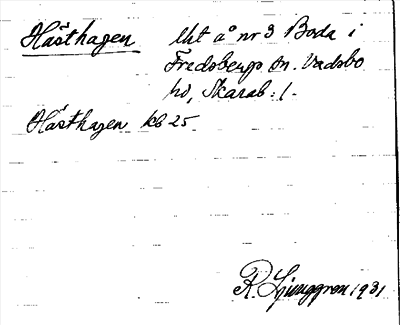 Hästhagen lht å nr 3 Boda i
Fredsbergs sn. Vadsbo
hd, Skarab. l.
Hästhagen kb 25
R. Ljunggren 1931